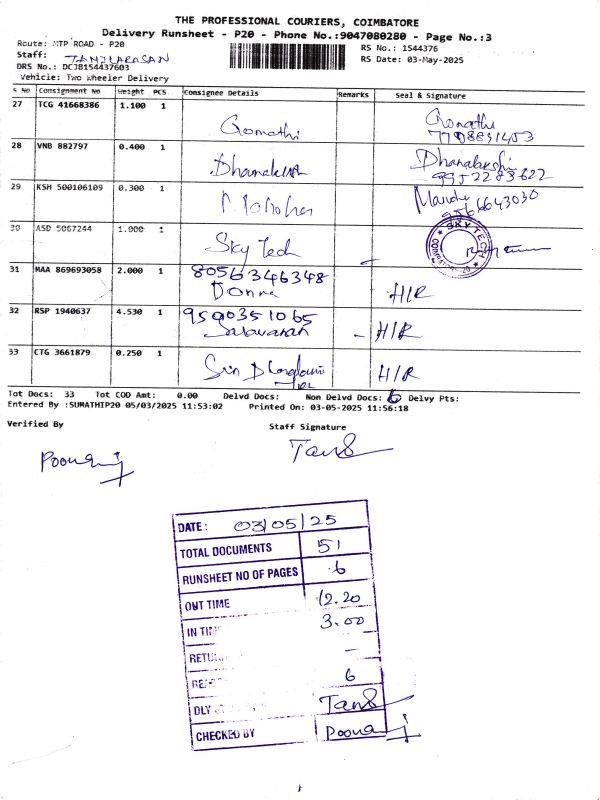 THE PROFESSIONAL COURIERS, COIMBATORE
Delivery Runsheet - P20 - Phone No.:9047080280 - Page No.:3
Route: MTP ROAD - P20
RS No.: 1544376
Staff: TAMILARASAN
RS Date: 03-May-2025
DRS No.: DCJB154437603
Vehicle: Two Wheeler Delivery
S No Consignment No Weight PCS Consignee Details Remarks Seal & Signature
27 TCG 41668386 1.100 1 Gomathi Gomathi
28 VNB 882797 0.400 1 Dhanalakshmi Dhanalakshmi
9952283622
29 KSH 500106109 0.300 1 Manohar
9566643030
30 ASD 5067244 1.000 1 Sky Tech SKY TECH
31 MAA 869693058 2.000 1 8056346348
Donna H/R
32 RSP 1940637 4.530 1 9500351065
Saravanan - H/R
33 CTG 3661879 0.250 1 H/R
Tot Docs: 33 Tot COD Amt: 0.00 Delvd Docs: Non Delvd Docs: 6 Delvy Pts:
Entered By :SUMATHIP20 05/03/2025 11:53:02 Printed On: 03-05-2025 11:56:18
Verified By Staff Signature
DATE: 03/05/25
TOTAL DOCUMENTS 51
RUNSHEET NO OF PAGES 6
OUT TIME 12.20
IN TIME 3.00
RETU –
6
DLY
CHECKED BY